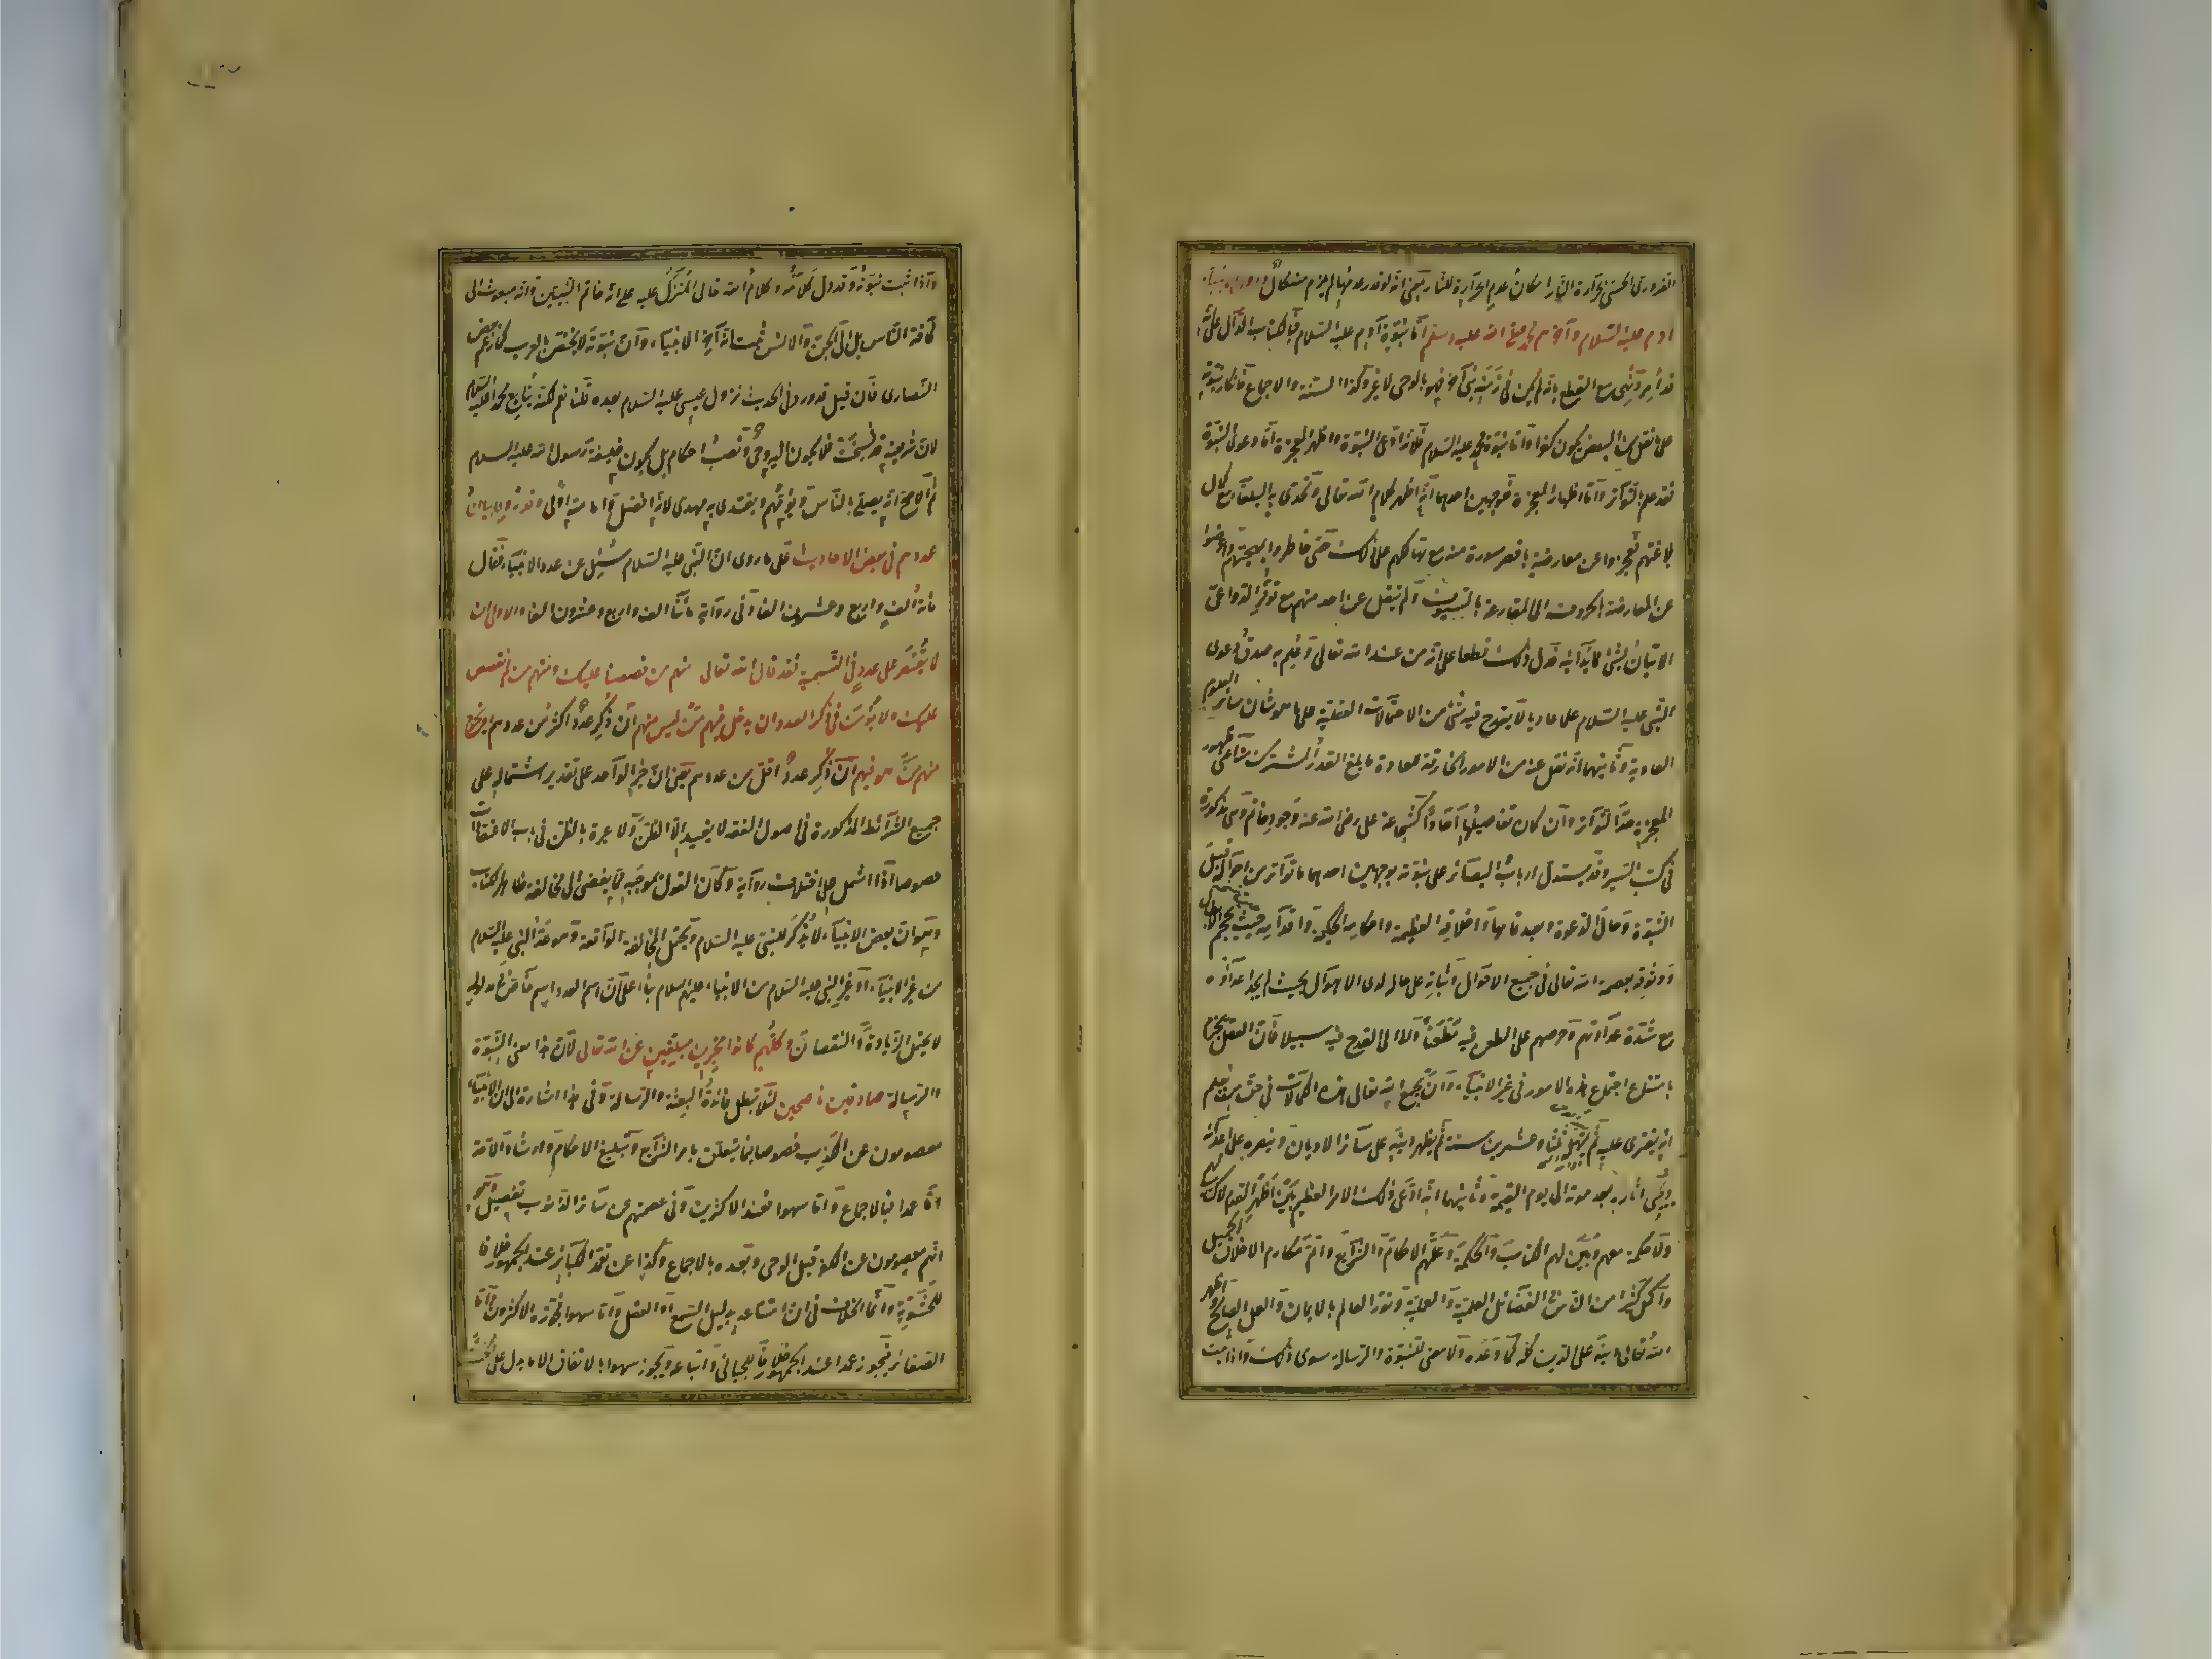 الضرورى الحسى بحرارة النار امكان عدم الحرارة للنار بمعنى انه لو قدر عدمها لم يلزم منه محال واول الانبياء
ادم عليه السلام وآخرهم محمد صلى الله عليه وسلم اما نبوة آدم عليه السلام فبالكتاب الدال على انه
قد امر ونهى مع القطع بانه لم يكن فى زمنه نبى آخر فهو بالوحى لا غير وكذا السنة والاجماع فانكار نبوته
على ما نقل عن البعض يكون كفرا واما نبوة محمد عليه السلام فلانه ادعى النبوة واظهر المعجزة اما دعوى النبوة
فقد علم بالتواتر واما اظهار المعجزة فبوجهين احدهما انه اظهر كلام الله تعالى وتحدى به البلغاء مع كمال
بلاغتهم فعجزوا عن معارضة باقصر سورة منه مع تهالكهم على ذلك حتى خاطروا بمهجتهم واعرضوا
عن المعارضة بالحروف الى المقارعة بالسيوف ولم ينقل عن احد منهم مع توفر الدواعى
الاتيان بشئ مما يدانيه فدل ذلك قطعا على انه من عند الله تعالى وعلم به صدق دعوى
النبى عليه السلام علما عاديا لا يقدح فيه شئ من الاحتمالات العقلية على ما هو شان سائر العلوم
العادية وثانيهما انه نقل عنه من الامور الخارقة للعادة ما بلغ القدر المشترك منه اعنى ظهور
المعجزة حد التواتر وان كان تفاصيلها آحادا كشجاعة على رضى الله عنه وجود حاتم وهى مذكورة
فى كتب السير وقد يستدل ارباب البصائر على نبوته بوجهين احدهما ما تواتر من احواله قبل
النبوة وحال الدعوة وبعد تمامها واخلاقه العظيمة واحكامه الحكمية واقدامه حيث يحجم الابطال
ووثوقه بعصمة الله تعالى فى جميع الاحوال وثباته على حاله لدى الاهوال بحيث لم يجد اعداؤه
مع شدة عداوتهم وحرصهم على الطعن فيه مطعنا ولا الى القدح فيه سبيلا فان العقل يجزم
بامتناع اجتماع هذه الامور فى غير الانبياء وان يجمع الله تعالى هذه الكمالات فى حق من يعلم
انه يفترى عليه ثم يمهله ثلثا وعشرين سنة ثم يظهر دينه على سائر الاديان وينصره على اعدائه
ويحيى آثاره بعد موته الى يوم القيمة وثانيهما انه ادعى ذلك الامر العظيم بين اظهر القوم لا كتاب لهم
ولا حكمة معهم وبين لهم الكتاب والحكمة وعلمهم الاحكام والشرايع واتم مكارم الاخلاق
واكمل كثيرا من الناس فى الفضائل العلمية والعملية ونور العالم بالايمان والعمل الصالح واظهر
الله تعالى دينه على الدين كله كما وعده ولا معنى للنبوة والرسالة سوى ذلك واذا ثبت
واذا ثبت نبوته وقد دل كلامه وكلام الله تعالى المنزل عليه على انه خاتم النبيين وانه مبعوث الى
كافة الناس بل الى الجن والانس ثبت انه آخر الانبياء وان نبوته لا يختص بالعرب كما زعم بعض
النصارى فان قيل قد ورد فى الحديث نزول عيسى عليه السلام بعده قلنا نعم لكنه يتابع محمدا عليه السلام
لان شريعته قد نسخت فلا يكون اليه وحى ونصب احكام بل يكون خليفة رسول الله عليه السلام
ثم الاصح انه يصلى بالناس ويؤمهم ويقتدى به مهدى لانه افضل فامامته اولى وقد روى بيان
عددهم فى بعض الاحاديث على ما روى ان النبى عليه السلام سئل عن عدد الانبياء فقال
مائة الف واربع وعشرون الفا وفى رواية مائتا الف واربع وعشرون الفا والاولى ان
لا يقتصر على عدد فى التسمية فقد قال الله تعالى منهم من قصصنا عليك ومنهم من لم نقصص
عليك ولا يؤمن فى ذكر العدد ان يدخل فيهم من ليس منهم ان ذكر عدد اكثر من عددهم او يخرج
منهم من هو فيهم ان ذكر عدد اقل من عددهم يعنى ان خبر الواحد على تقدير اشتماله على
جميع الشرائط المذكورة فى اصول الفقه لا يفيد الا الظن ولا عبرة بالظن فى باب الاعتقادات
خصوصا اذا اشتمل على اختلاف رواية وكان القول بموجبه مما يفضى الى مخالفة ظاهر الكتاب
وهو ان بعض الانبياء لم يذكر للنبى عليه السلام ويحتمل المخالفة الواقعة وهو عد النبى عليه السلام
من غير الانبياء او غير النبى عليه السلام من الانبياء عليهم السلام بناء على ان اسم العدد اسم خاص لمدلوله
لا يحتمل الزيادة والنقصان وكلهم كانوا مخبرين مبلغين عن الله تعالى لان هذا معنى النبوة
والرسالة صادقين ناصحين لئلا تبطل فائدة البعثة والرسالة وفى هذا اشارة الى ان الانبياء
معصومون عن الكذب خصوصا فيما يتعلق بامر الشرايع وتبليغ الاحكام وارشاد الامة
اما عمدا فبالاجماع واما سهوا فعند الاكثرين وفى عصمتهم عن سائر الذنوب تفصيل وهو
انهم معصومون عن الكفر قبل الوحى وبعده بالاجماع وكذا عن تعمد الكبائر عند الجمهور خلافا
للحشوية وانما الخلاف فى ان امتناعه بدليل السمع او العقل واما سهوا فجوزه الاكثرون واما
الصغائر فيجوز عمدا عند الجمهور خلافا للجبائى واتباعه ويجوز سهوا بالاتفاق الا ما يدل على الخسة